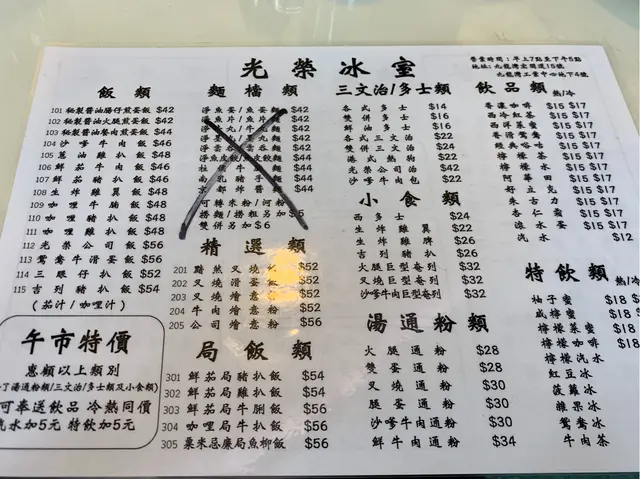 光榮冰室
營業時間：早上7點至下午5點
地址：九龍灣宏開道15號
九龍灣工業中心地下4號
飯類
101 秘製醬油腸仔煎蛋飯 $42
102 秘製醬油火腿煎蛋飯 $42
103 秘製醬油餐肉煎蛋飯 $44
104 沙爹牛肉飯 $46
105 蔥油雞扒飯 $48
106 鮮茄牛肉飯 $46
107 鮮茄豬扒飯 $46
108 生炸雞翼飯 $48
109 咖喱牛腩飯 $48
110 咖喱豬扒飯 $48
111 咖喱雞扒飯 $48
112 光榮公司飯 $56
113 鴛鴦牛滑蛋飯 $56
114 三眼仔扒飯 $52
115 吉列豬扒飯 $54
(茄汁/咖哩汁)
午市特價
惠顧以上類別
湯通粉類/三文治/多士類及小食類)
可奉送飲品 冷熱同價
汽水加5元 特飲加5元
麵檔類
$42
$42
$42
$42
$42
$44
$44
$44
可轉米粉/河粉
雙併另加$6
精選類
201 黯然叉燒飯 $52
202 叉燒滑蛋飯 $52
203 叉燒燴意粉 $52
204 牛肉燴意粉 $52
205 公司燴意粉 $56
局飯類
301 鮮茄局豬扒飯 $54
302 鮮茄局雞扒飯 $54
303 鮮茄局牛脷飯 $56
304 咖喱局牛肉飯 $56
305 粟米忌廉局魚柳飯 $56
三文治/多士類
各式多士 $14
雙併多士 $16
鮮油多士 $16
各式三文治 $22
雙併三文治 $24
港式熱狗 $22
沙爹牛肉包 $22
小食類
西多士 $24
生炸雞翼 $22
生炸雞脾 $26
吉列豬扒 $26
火腿巨型奄列 $32
叉燒巨型奄列 $32
沙爹牛肉巨型奄列 $32
湯通粉類
火腿通粉 $28
雙蛋通粉 $28
叉燒通粉 $30
腿蛋通粉 $30
沙爹牛肉通粉 $30
鮮牛肉通粉 $34
飲品類 熱/冷
香濃咖啡 $15 $17
西冷紅茶 $15 $17
西洋菜蜜 $15 $17
香滑鴛鴦 $15 $17
經典咯咕 $15 $17
檸檬茶 $15 $17
檸檬水 $15 $17
阿華田 $15 $17
好立克 $15 $17
朱古力 $15 $17
杏仁霜 $15 $17
滾水蛋 $15 $17
汽水 $12
特飲類 熱/冷
柚子蜜 $18
咸檸蜜 $18
檸檬菜蜜 $18
檸檬咖啡 $18
檸檬汽水
紅豆冰
菠蘿冰
雜果冰
鴛鴦冰
牛肉茶